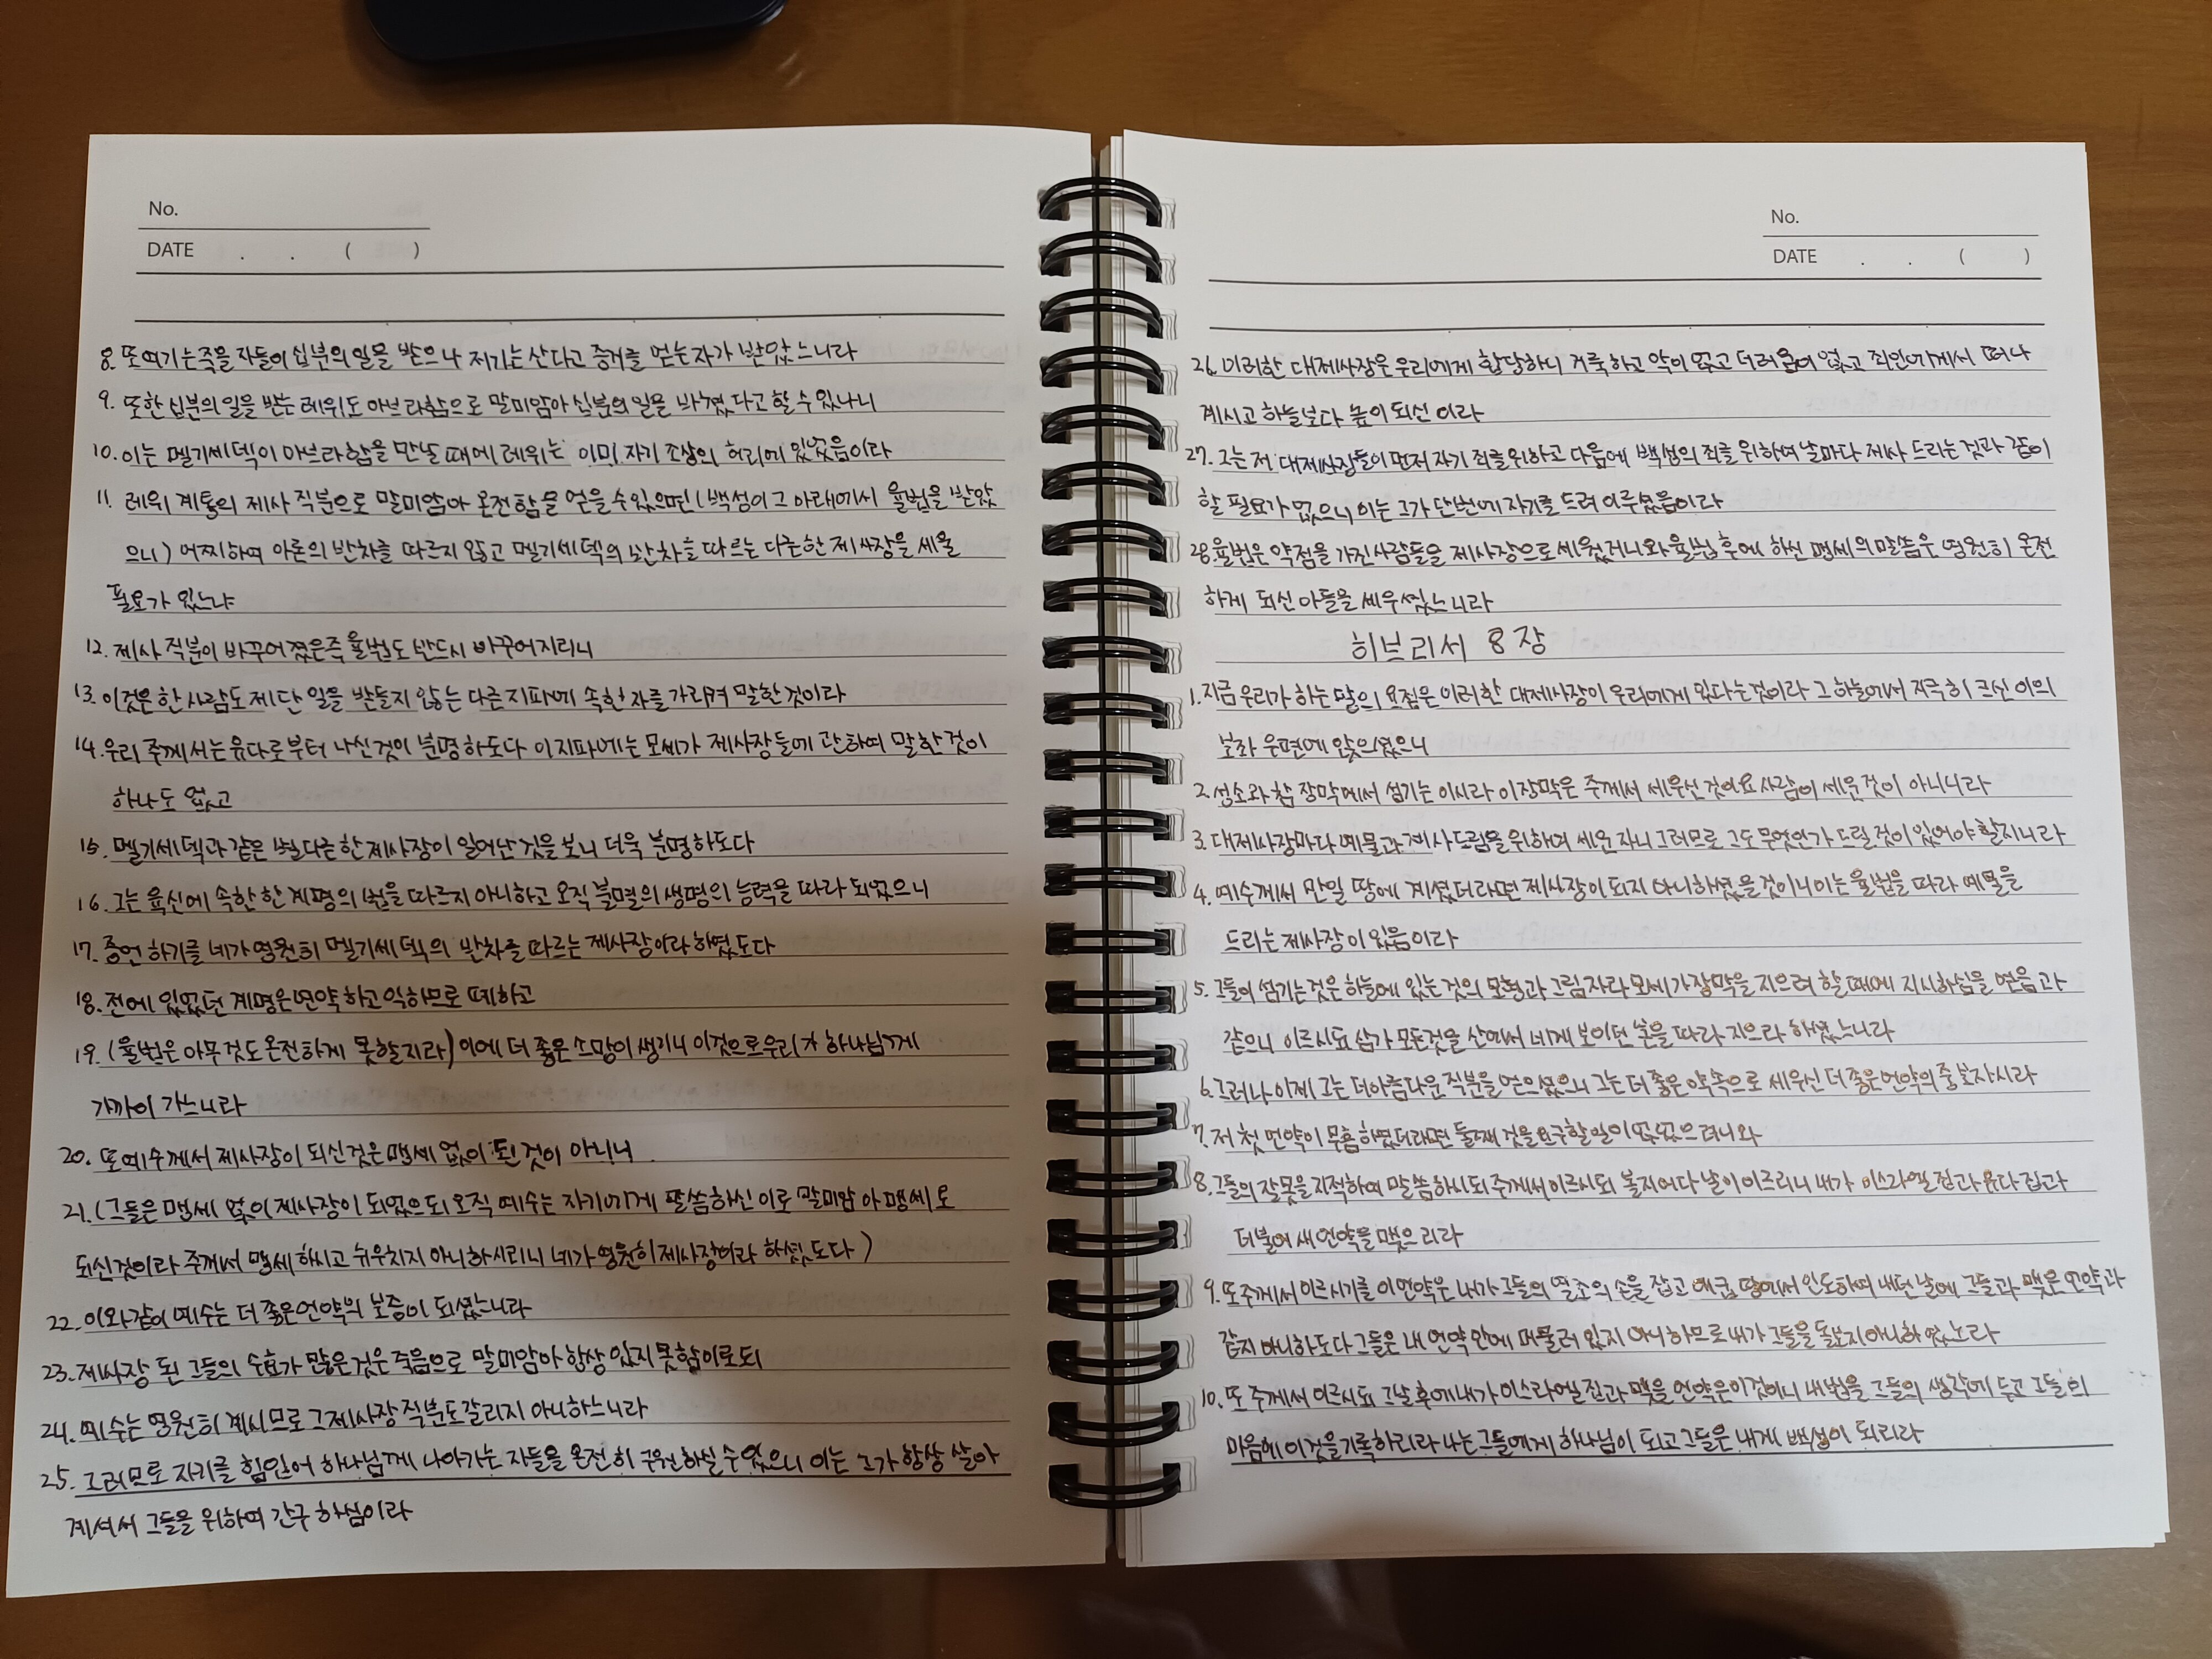 No.
DATE . . ( )
8. 또 여기는 죽을 자들이 십분의 일을 받으나 저기는 산다고 증거를 얻는 자가 받았느니라
9. 또한 십분의 일을 받는 레위도 아브라함으로 말미암아 십분의 일을 바쳤다고 할 수 있나니
10. 이는 멜기세덱이 아브라함을 만날 때에 레위는 이미 자기 조상의 허리에 있었음이라
11. 레위 계통의 제사 직분으로 말미암아 온전함을 얻을 수 있으면 (백성이 그 아래에서 율법을 받았
으니) 어찌하여 아론의 반차를 따르지 않고 멜기세덱의 반차를 따르는 다른 한 제사장을 세울
필요가 있느냐
12. 제사 직분이 바꾸어졌은즉 율법도 반드시 바꾸어지리니
13. 이것은 한 사람도 제단 일을 받들지 않는 다른 지파에 속한 자를 가리켜 말한 것이라
14. 우리 주께서는 유다로부터 나신 것이 분명하도다 이 지파에는 모세가 제사장들에 관하여 말한 것이
하나도 없고
15. 멜기세덱과 같은 별다른 한 제사장이 일어난 것을 보니 더욱 분명하도다
16. 그는 육신에 속한 한 계명의 법을 따르지 아니하고 오직 불멸의 생명의 능력을 따라 되었으니
17. 증언하기를 네가 영원히 멜기세덱의 반차를 따르는 제사장이라 하였도다
18. 전에 있었던 계명은 연약하고 익하므로 폐하고
19. (율법은 아무 것도 온전하게 못할지라) 이에 더 좋은 소망이 생기니 이것으로 우리가 하나님께
가까이 가느니라
20. 또 예수께서 제사장이 되신 것은 맹세 없이 된 것이 아니니
21. (그들은 맹세 없이 제사장이 되었으되 오직 예수는 자기에게 말씀하신 이로 말미암아 맹세로
되신 것이라 주께서 맹세하시고 뉘우치지 아니하시리니 네가 영원히 제사장이라 하셨도다)
22. 이와 같이 예수는 더 좋은 언약의 보증이 되셨느니라
23. 제사장 된 그들의 수효가 많은 것은 죽음으로 말미암아 항상 있지 못함이로되
24. 예수는 영원히 계시므로 그 제사장 직분도 갈리지 아니하느니라
25. 그러므로 자기를 힘입어 하나님께 나아가는 자들을 온전히 구원하실 수 있으니 이는 그가 항상 살아
계셔서 그들을 위하여 간구하심이라
No.
DATE . . ( )
26. 이러한 대제사장은 우리에게 합당하니 거룩하고 악이 없고 더러움이 없고 죄인에게서 떠나
계시고 하늘보다 높이 되신 이라
27. 그는 저 대제사장들이 먼저 자기 죄를 위하고 다음에 백성의 죄를 위하여 날마다 제사 드리는 것과 같이
할 필요가 없으니 이는 그가 단번에 자기를 드려 이루셨음이라
28. 율법은 약점을 가진 사람들을 제사장으로 세웠거니와 율법 후에 하신 맹세의 말씀은 영원히 온전
하게 되신 아들을 세우셨느니라
히브리서 8장
1. 지금 우리가 하는 말의 요점은 이러한 대제사장이 우리에게 있다는 것이라 그 하늘에서 지극히 크신 이의
보좌 우편에 앉으셨으니
2. 성소와 참 장막에서 섬기는 이시라 이 장막은 주께서 세우신 것이요 사람이 세운 것이 아니니라
3. 대제사장마다 예물과 제사 드림을 위하여 세운 자니 그러므로 그도 무엇인가 드릴 것이 있어야 할지니라
4. 예수께서 만일 땅에 계셨더라면 제사장이 되지 아니하셨을 것이니 이는 율법을 따라 예물을
드리는 제사장이 있음이라
5. 그들이 섬기는 것은 하늘에 있는 것의 모형과 그림자라 모세가 장막을 지으려 할 때에 지시하심을 얻음과
같으니 이르시되 삼가 모든 것을 산에서 네게 보이던 본을 따라 지으라 하셨느니라
6. 그러나 이제 그는 더 아름다운 직분을 얻으셨으니 그는 더 좋은 약속으로 세우신 더 좋은 언약의 중보자시라
7. 저 첫 언약이 무흠하였더라면 둘째 것을 요구할 일이 없었으려니와
8. 그들의 잘못을 지적하여 말씀하시되 주께서 이르시되 볼지어다 날이 이르리니 내가 이스라엘 집과 유다 집과
더불어 새 언약을 맺으리라
9. 또 주께서 이르시기를 이 언약은 내가 그들의 열조의 손을 잡고 애굽 땅에서 인도하여 내던 날에 그들과 맺은 언약과
같지 아니하도다 그들은 내 언약 안에 머물러 있지 아니하므로 내가 그들을 돌보지 아니하였노라
10. 또 주께서 이르시되 그날 후에 내가 이스라엘 집과 맺을 언약은 이것이니 내 법을 그들의 생각에 두고 그들의
마음에 이것을 기록하리라 나는 그들에게 하나님이 되고 그들은 내게 백성이 되리라